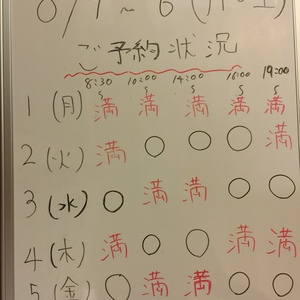 ご予約状況
8:30 10:00 14:00 16:00 19:00
〜 〜 〜 〜 〜
1(月) 満 満 満 満 満
2(火) 満 ○ ○ ○ 満
3(水) ○ 満 満 ○ ○
4(木) 満 ○ ○ 満 満
5(金) ○ 満 満 ○ ○